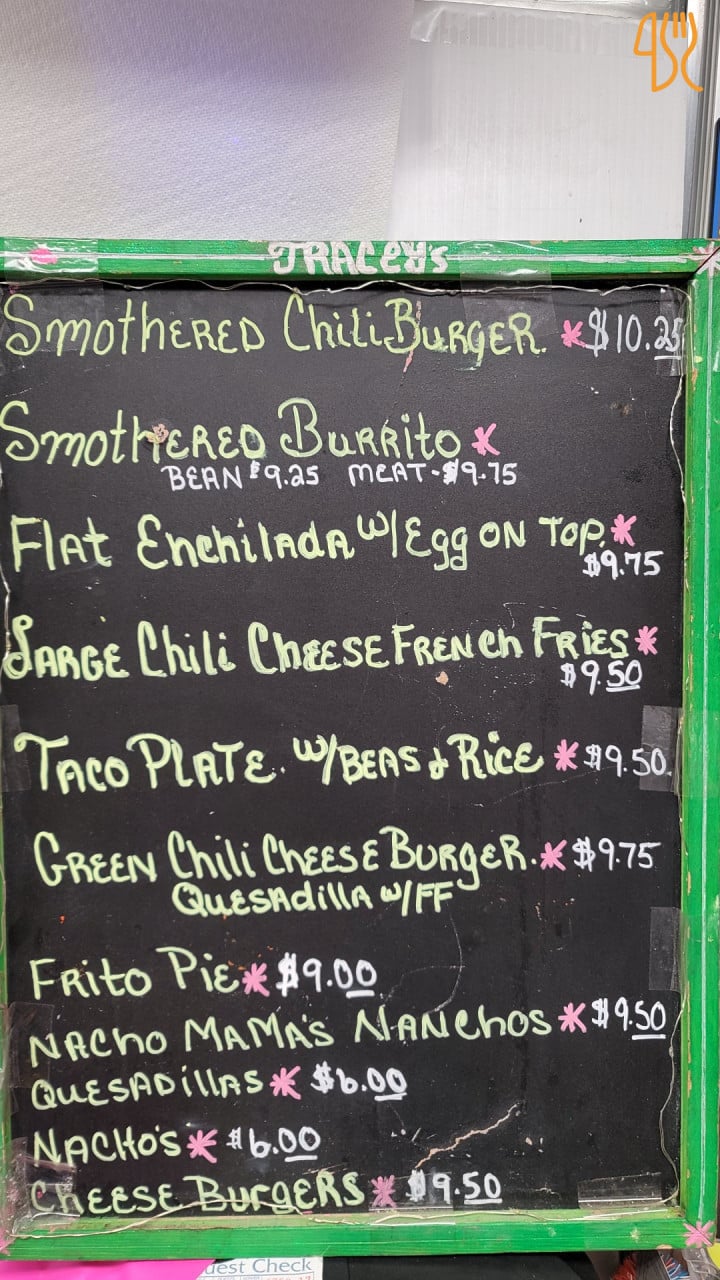 TRACEY's
SmothERED ChiliBURGER. * $10.25
SmothERED BURRito *
BEAN $9.25 MEAT-$9.75
FlAt EnchilADA W/Egg ON TOP. *
$9.75
LARGE Chili CHEESE FRENch FRiES *
$9.50
TACO PLATE. W/BEAS & RiCE * $9.50.
GREEN Chili CHEESE BURGER. * $9.75
QUESAdillA W/FF
FRito PiE * $9.00
NACho MAMA'S NANChOS * $9.50
QUESADillAS * $6.00
NACHO'S * $6.00
CHEESE BURGERS * $9.50
uest Check